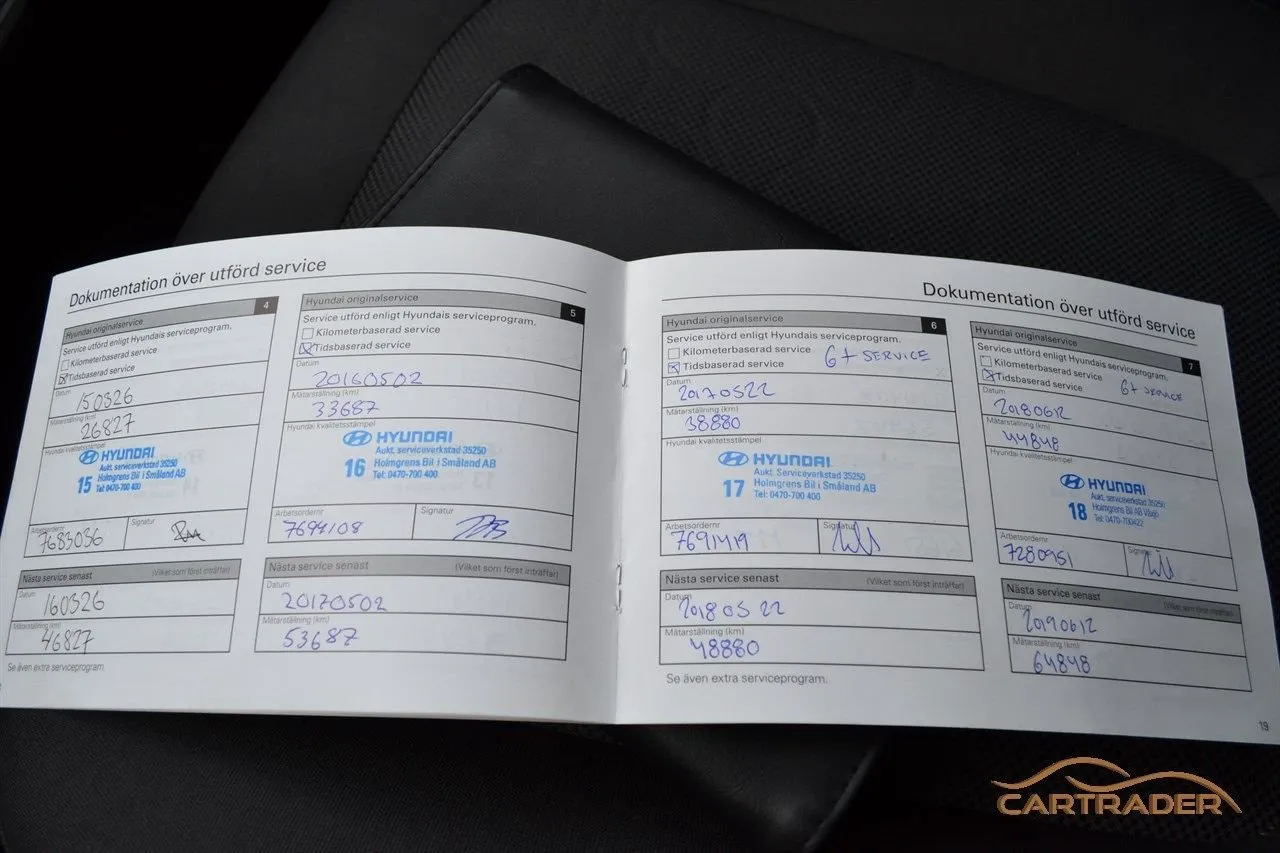 Dokumentation över utförd service
Hyundai originalservice 4
Service utförd enligt Hyundais serviceprogram.
Kilometerbaserad service
Tidsbaserad service
Datum
150326
Mätarställning (km)
26827
Hyundai kvalitetsstämpel
HYUNDAI
Aukt. serviceverkstad 35250
15 Holmgrens Bil i Småland AB
Tel: 0470-700 400
Arbetsordernr Signatur
7683036
Nästa service senast (Vilket som först inträffar)
Datum
160326
Mätarställning (km)
46827
Se även extra serviceprogram.
Hyundai originalservice 5
Service utförd enligt Hyundais serviceprogram.
Kilometerbaserad service
Tidsbaserad service
Datum
20160502
Mätarställning (km)
33687
Hyundai kvalitetsstämpel
HYUNDAI
Aukt. serviceverkstad 35250
16 Holmgrens Bil i Småland AB
Tel: 0470-700 400
Arbetsordernr Signatur
7694108
Nästa service senast (Vilket som först inträffar)
Datum
20170502
Mätarställning (km)
53687
Dokumentation över utförd service
Hyundai originalservice 6
Service utförd enligt Hyundais serviceprogram.
Kilometerbaserad service 6+ SERVICE
Tidsbaserad service
Datum
20170522
Mätarställning (km)
38880
Hyundai kvalitetsstämpel
HYUNDAI
Aukt. Serviceverkstad 35250
17 Holmgrens Bil i Småland AB
Tel: 0470-700 400
Arbetsordernr Signatur
7691419
Nästa service senast (Vilket som först inträffar)
Datum
2018 05 22
Mätarställning (km)
48880
Se även extra serviceprogram.
Hyundai originalservice 7
Service utförd enligt Hyundais serviceprogram.
Kilometerbaserad service
Tidsbaserad service 6+ SERVICE
Datum
20180612
Mätarställning (km)
44848
Hyundai kvalitetsstämpel
HYUNDAI
Aukt. serviceverkstad 35250
18 Holmgrens Bil AB Växjö
Tel: 0470-700422
Arbetsordernr Signatur
7280951
Nästa service senast (Vilket som först inträffar)
Datum
20190612
Mätarställning (km)
64848
19
CARTRADER